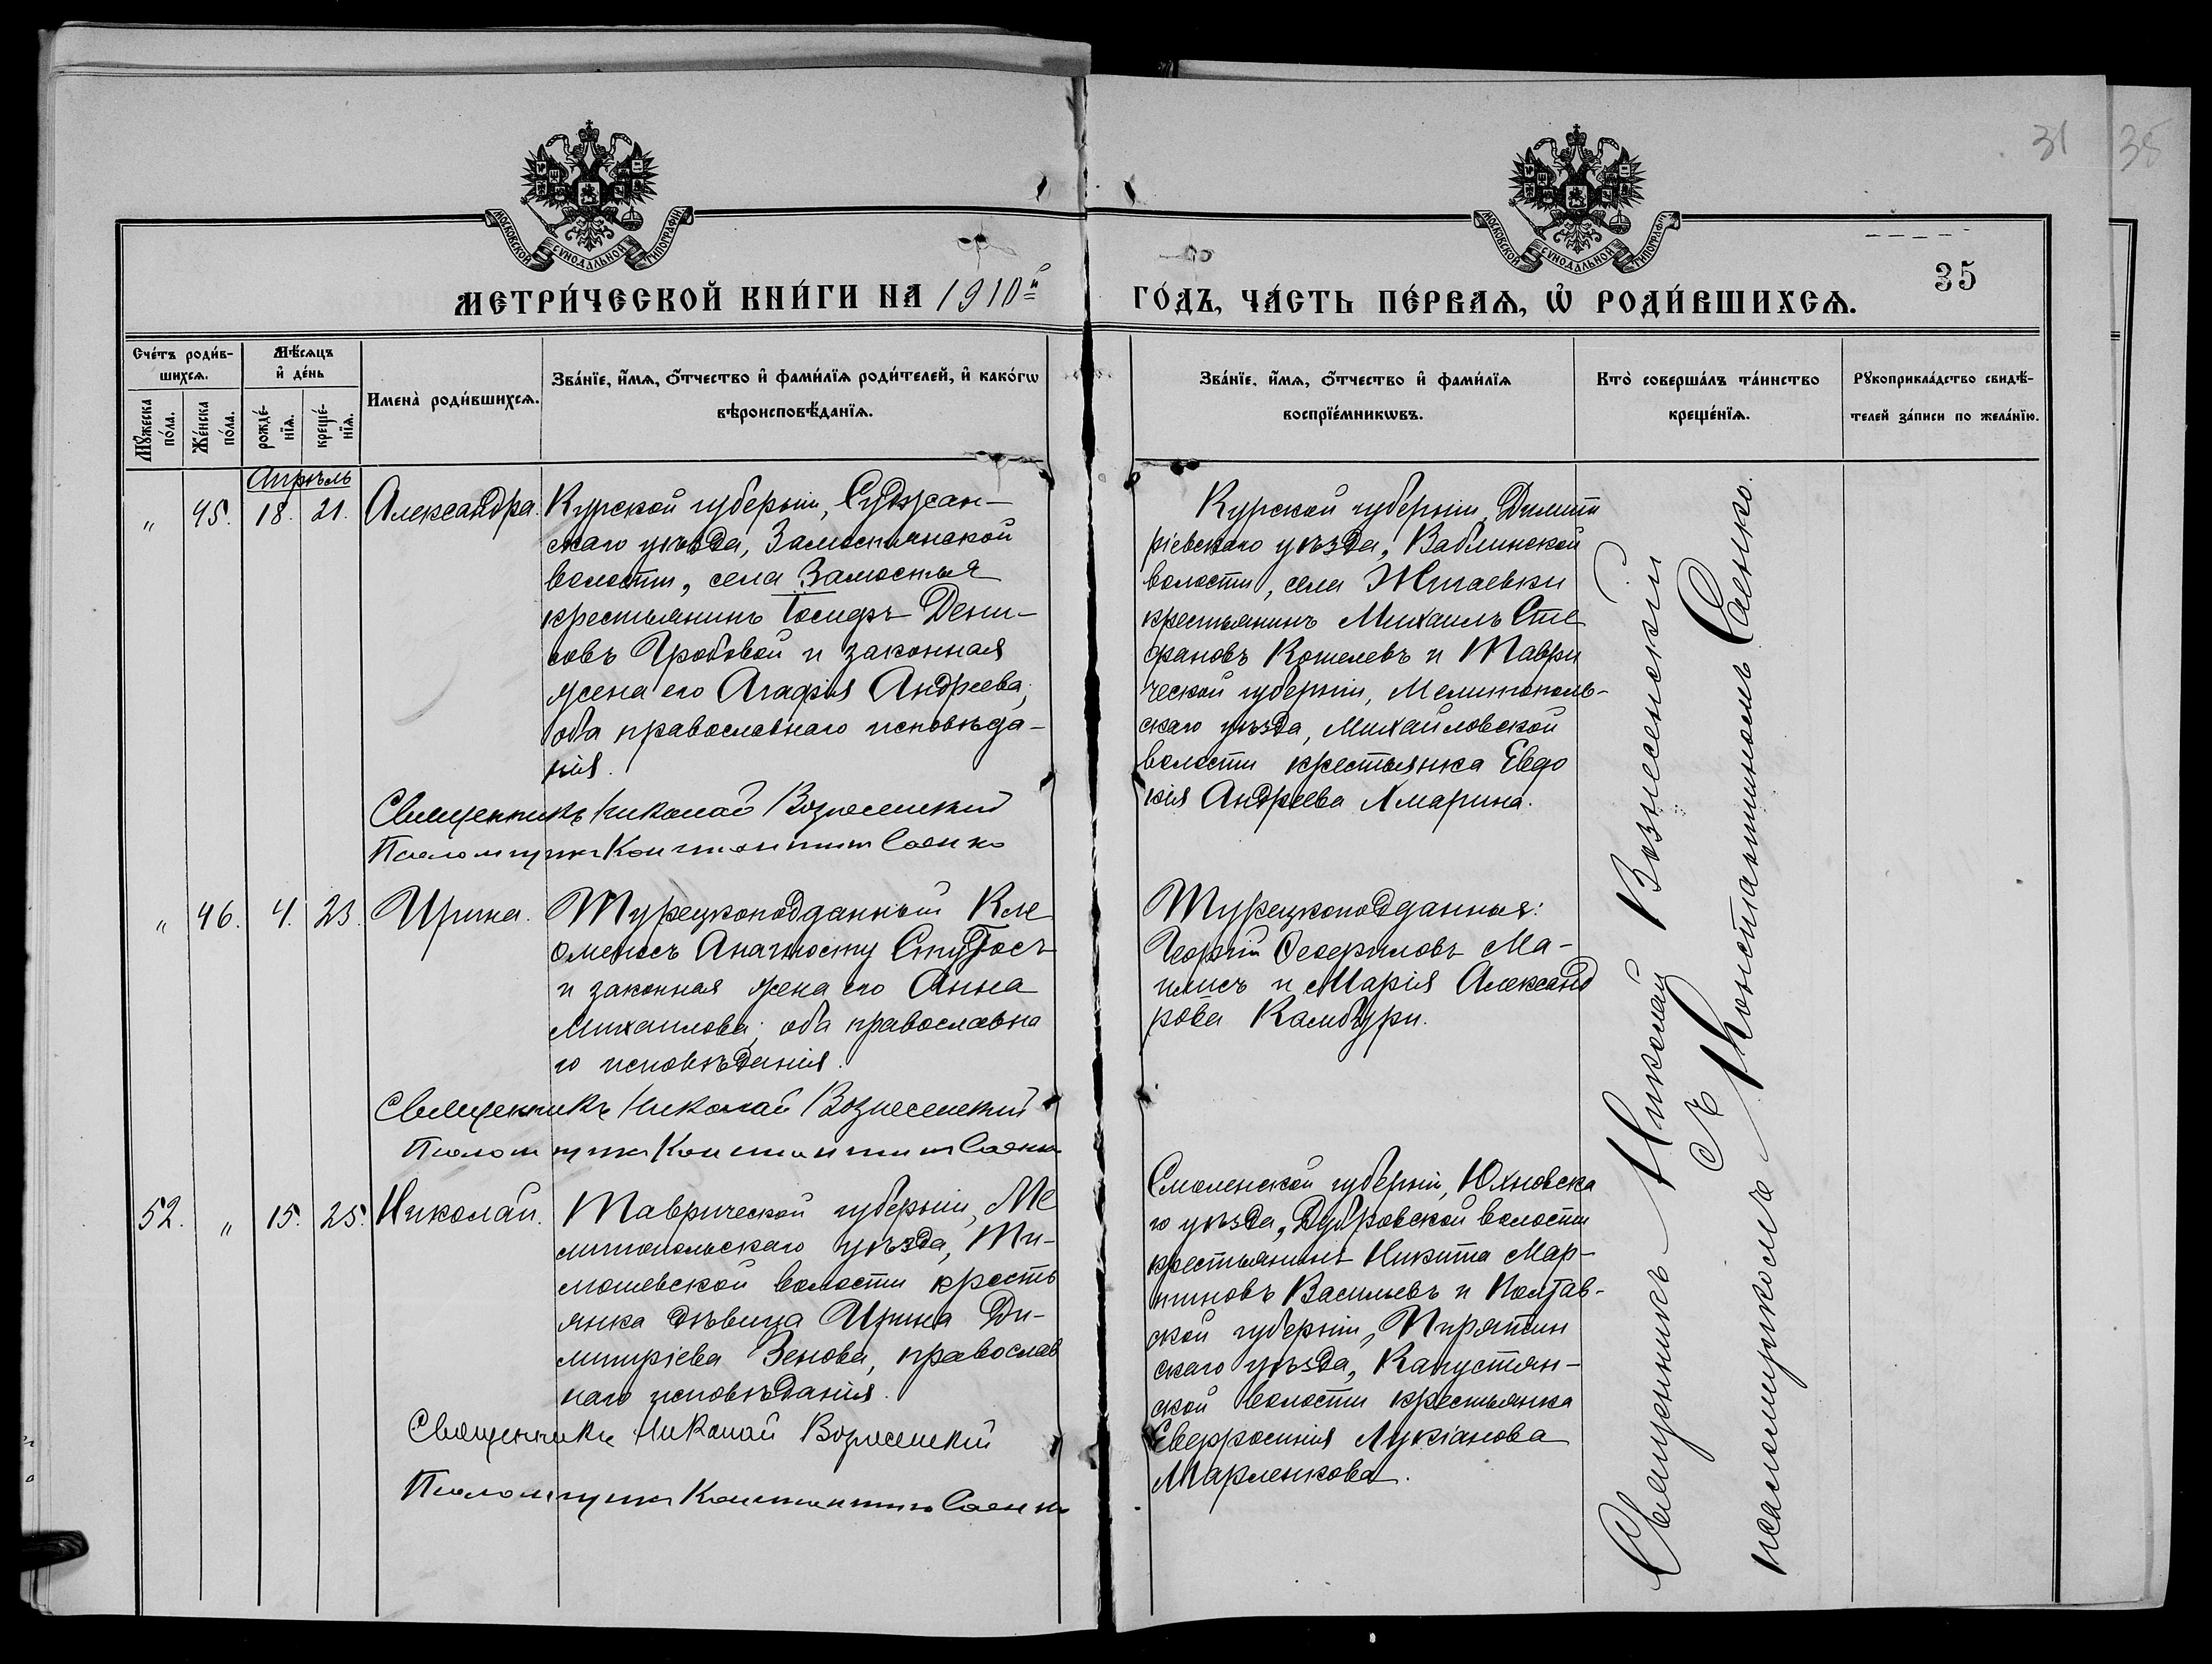 31
38
МОСКОВСКОЙ СѴНОДАЛЬНОЙ ТИПОГРАФІИ
МОСКОВСКОЙ СѴНОДАЛЬНОЙ ТИПОГРАФІИ
35
МЕТРИ́ЧЕСКОЙ КНИ́ГИ НА 1910й ГО́ДЪ, ЧА́СТЬ ПЕ́РВАѦ, Ѽ РОДИ́ВШИХСѦ.
Сче́тъ роди́в-
шихсѧ.
Мѣ́сѧцъ
и҆ де́нь
Мꙋ́жеска
по́ла.
Же́нска
по́ла.
рожде́-
нїѧ.
креще́-
нїѧ.
Имена̀ роди́вшихсѧ.
Зва́нїе, и҆́мѧ, ѻ҆́тчество и҆ фами́лїѧ роди́телей, и҆ како́гѡ
вѣроисповѣ́данїѧ.
Зва́нїе, и҆́мѧ, ѻ҆́тчество и҆ фами́лїѧ
воспрїе́мникѡвъ.
Кто̀ соверша́лъ та́инство
креще́нїѧ.
Рꙋкоприкла́дство свидѣ́-
телей за́писи по жела́нїю.
Апрѣль
„ 45. 18. 21. Александра.
Курской губерніи, Суджан-
скаго уѣзда, Замостянской
волости, села Замостья
крестьянинъ Іосифъ Дени-
совъ Гробовой и законная
жена его Агафія Андреева;
оба православнаго исповѣда-
нія.
Священникъ Николай Вознесенский
Псаломщикъ Константинъ Саенко
Курской губерніи, Димит
ріевскаго уѣзда, Ваблинской
волости, села Жигаевки
крестьянинъ Михаилъ Сте
фановъ Кошелевъ и Таври
ческой губерніи, Мелитополь-
скаго уѣзда, Михайловской
волости крестьянка Евдо
кія Андреева Хмарина.
„ 46. 4. 23. Ирина.
Турецкоподданный Кле
оменосъ Анагности
и законная жена его Анна
Михаилова; оба православна
го исповѣданія.
Священникъ Николай Вознесенский
Псаломщикъ Константинъ Саенко
Турецкоподданныя:
Георгій Ма-
и Марія Александ
рова Камбури.
52. „ 15. 25. Николай.
Таврической губерніи, Ме
литопольскаго уѣзда, Ти-
мошевской волости кресть
янка дѣвица Ирина Ди-
митріева Зенова, православ
наго исповѣданія.
Священникъ Николай Вознесенский
Псаломщикъ Константинъ Саенко
Смоленской губерніи, Юхновска
го уѣзда, Дубровской волости
крестьянинъ Никита Мар-
тиновъ Васильевъ и Полтав-
ской губерніи, Пирятин
скаго уѣзда, Капустян-
ской волости крестьянка
Евфросинія Лукіанова
Марленкова.
Священникъ Николай Вознесенскій
съ псаломщикомъ Константиномъ Саенко.